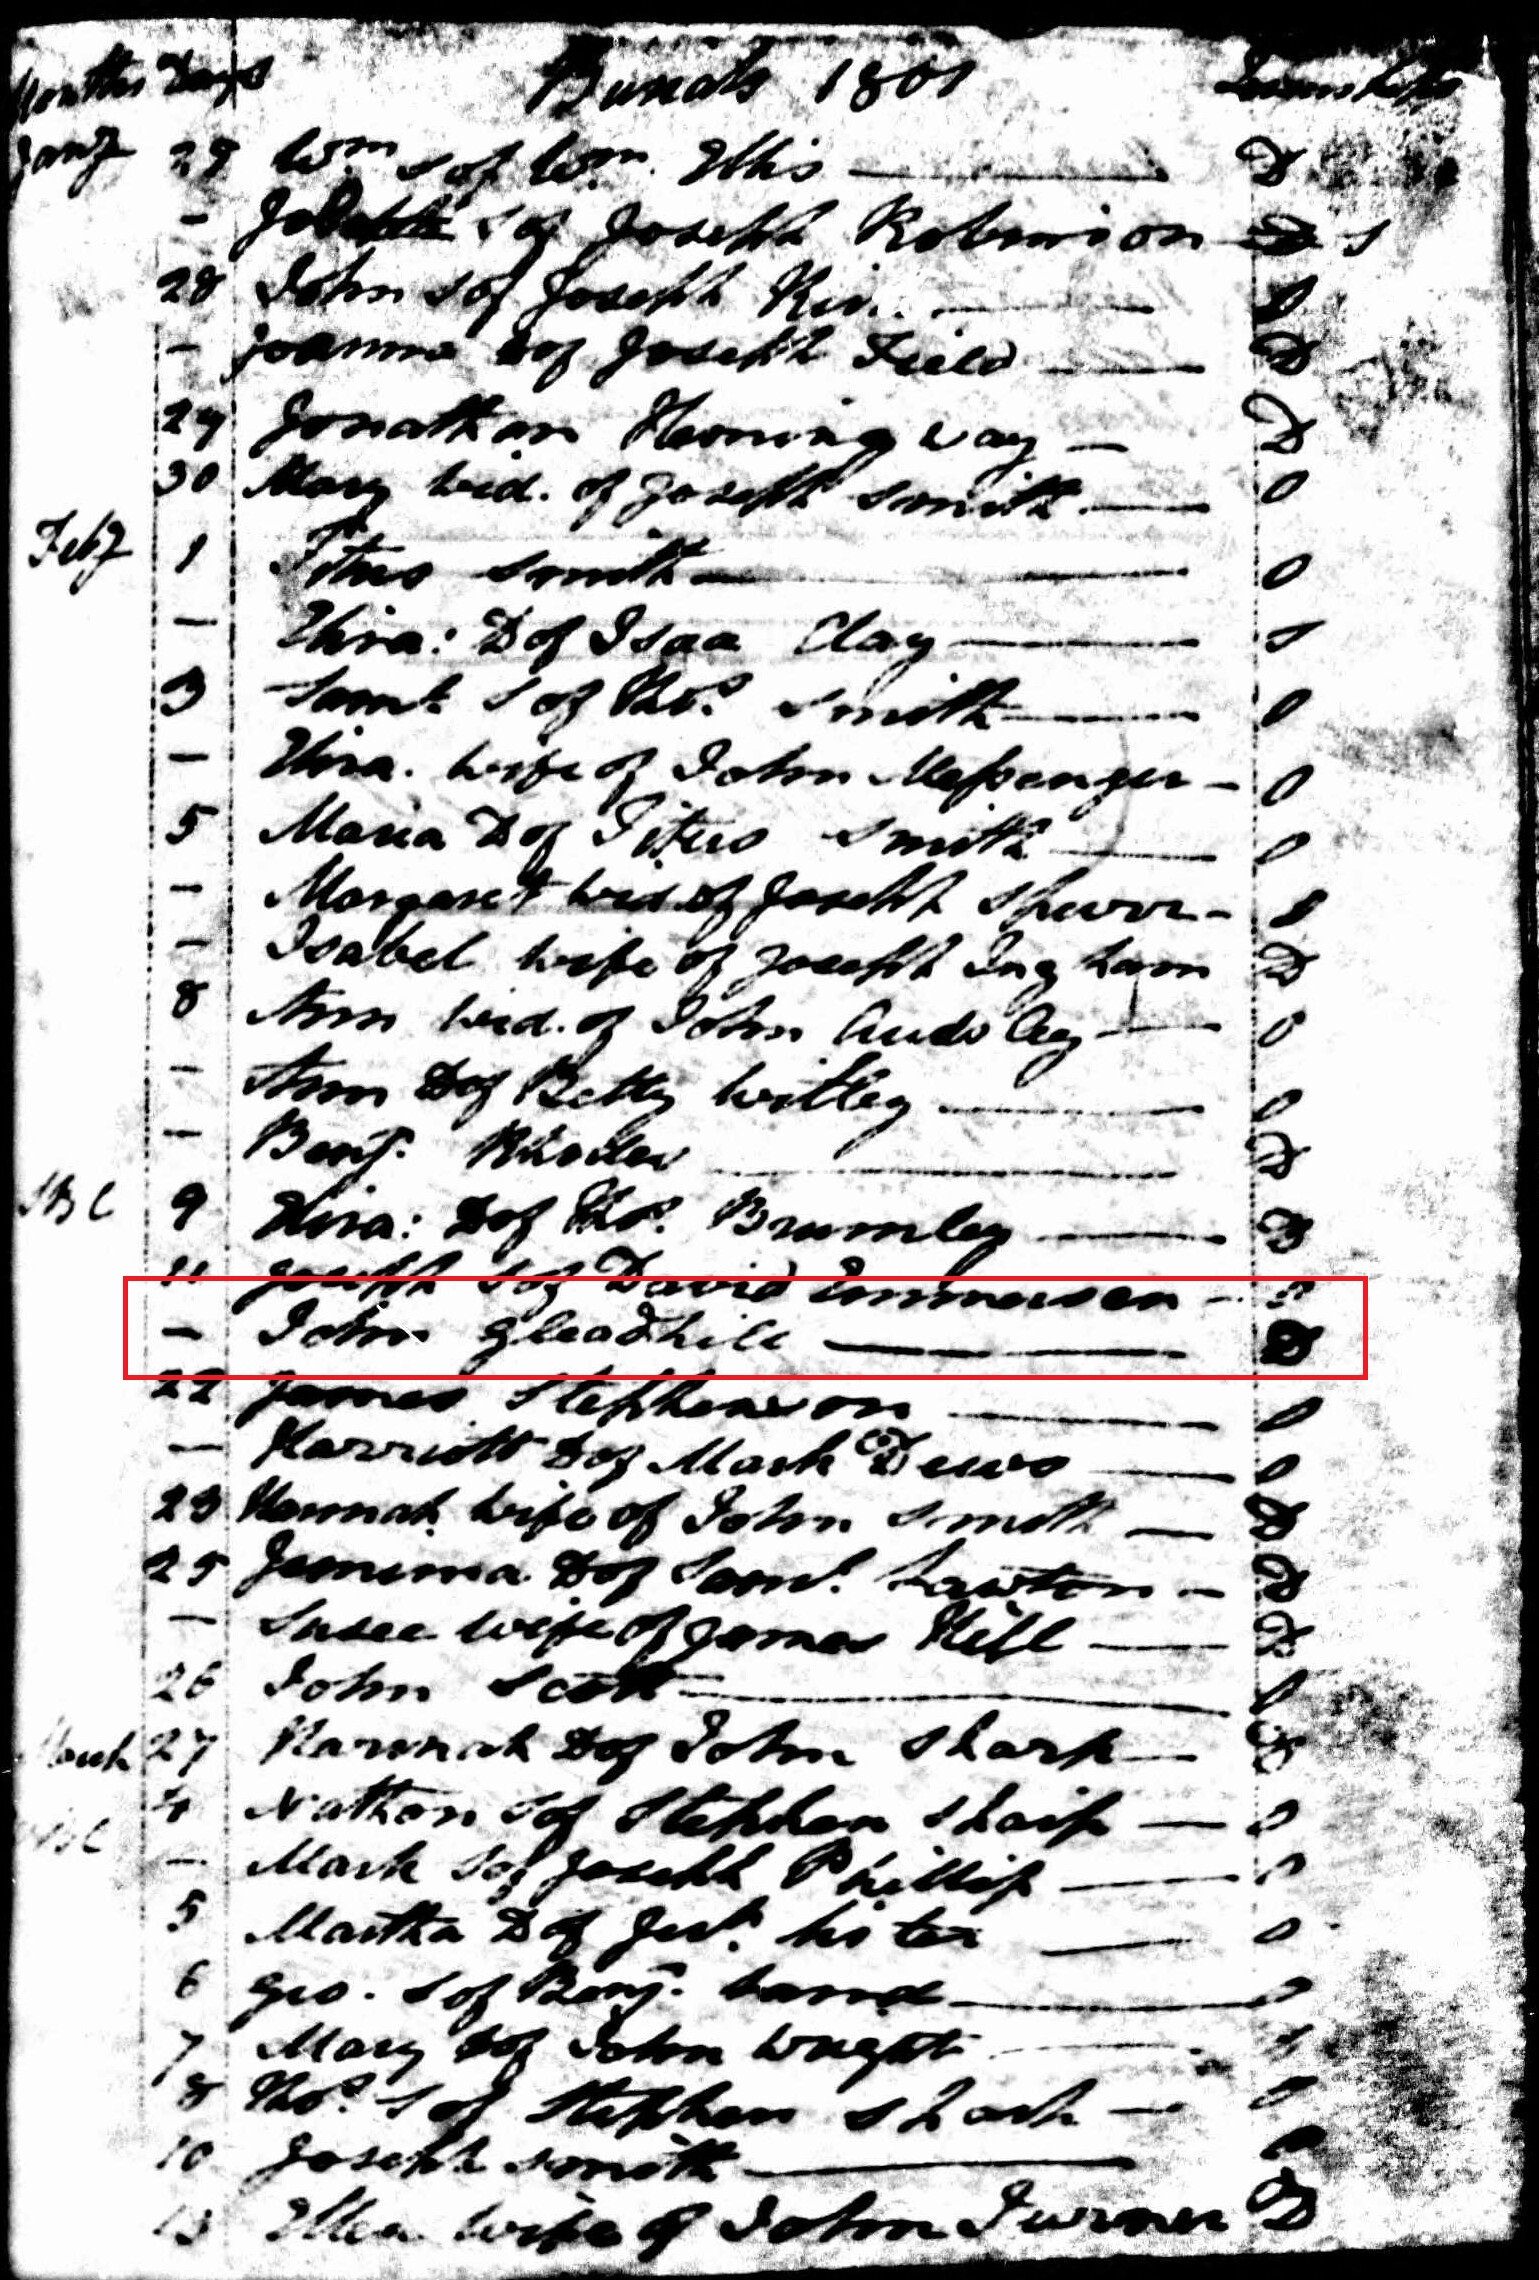 Months Days Burials 1801 Townships
Jany 27 Wm S of Wm. Ellis D
- S of Joseph Robinson S
28 John S of Joseph O
- Joanna D of Joseph Field D
29 Jonathan Hemingway D
30 Mary wid. of Joseph Smith O
Feby 1 Titus Smith O
- Eliza: D of Isaa Clay S
3 Saml. S of Thos. Smith O
- Eliza. wife of John Messenger O
5 Maria D of Titus Smith O
- Margaret wid. of Joseph Spurr S
- Isabel wife of Joseph Ingham D
8 Ann wid. of John Audsley O
- Ann D of Betty Witley O
- Benj. Rhodes D
9 Eliza: D of Thos. Brumley D
11 Joseph S of David Emmerson
- John Gleadhill D
22 James Stephenson O
- Harriott D of Mark Dews O
23 Hannah wife of John Smith D
25 Jemima D of Saml. Lawton D
- Susee wife of James Hill D
26 John Scott O
March 27 Hannah D of John Sharp
4 Nathan S of Stephen Sharp O
- Mark S of Joseph Phillip O
5 Martha D of Lister O
6 Geo. S of Benj. O
7 Mary D of John Wright
8 Thos. S of Stephen O
10 Joseph Smith
13 Ellen wife of John Turner D